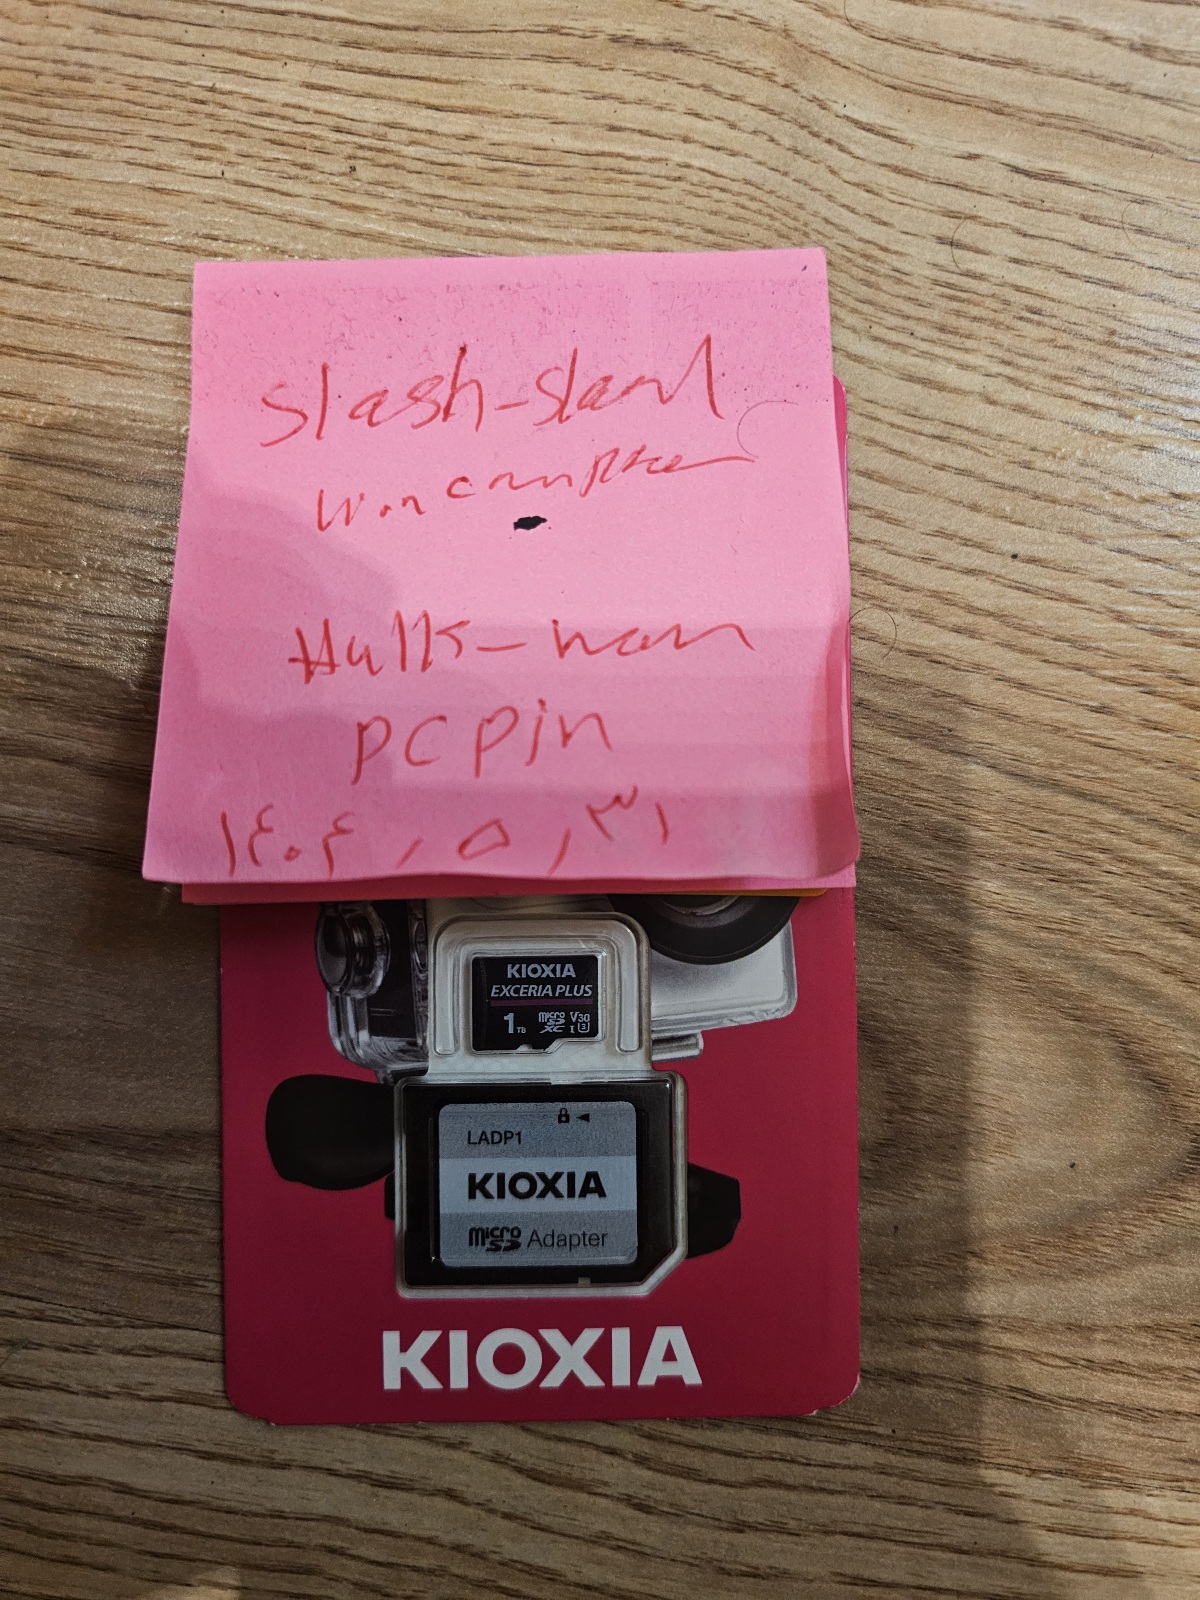 slash-sland
Hulk-wan
PC Pin
۱۴۰۴,۵,۳۱
KIOXIA
EXCERIA PLUS
1TB micro SD XC I V30 3
LADP1
KIOXIA
micro SD Adapter
KIOXIA